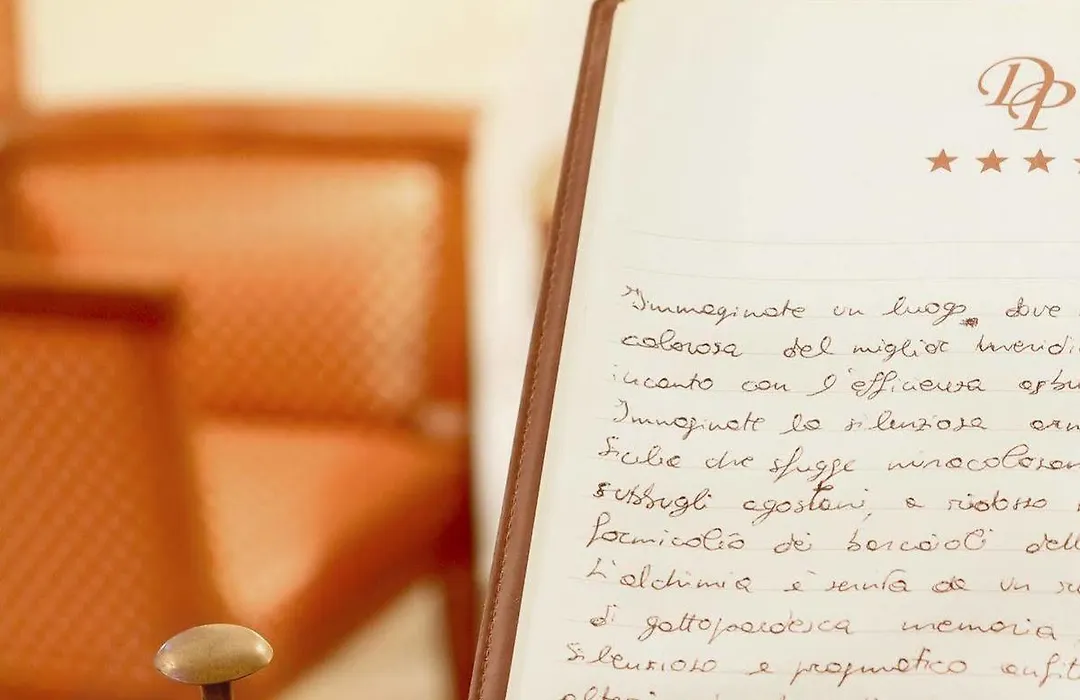 DP
"Immaginate un luogo, dove
calorosa del miglior
incanto con l'efficienza asbu
Immaginate la silenziosa arm
Sicilia che sfugge miracolosam
subbugli agostani, a ridosso
formicolio dei barcaioli dell
L'alchimia è servita da un
di gattopardesca memoria
Silenzioso e pragmatico anfit